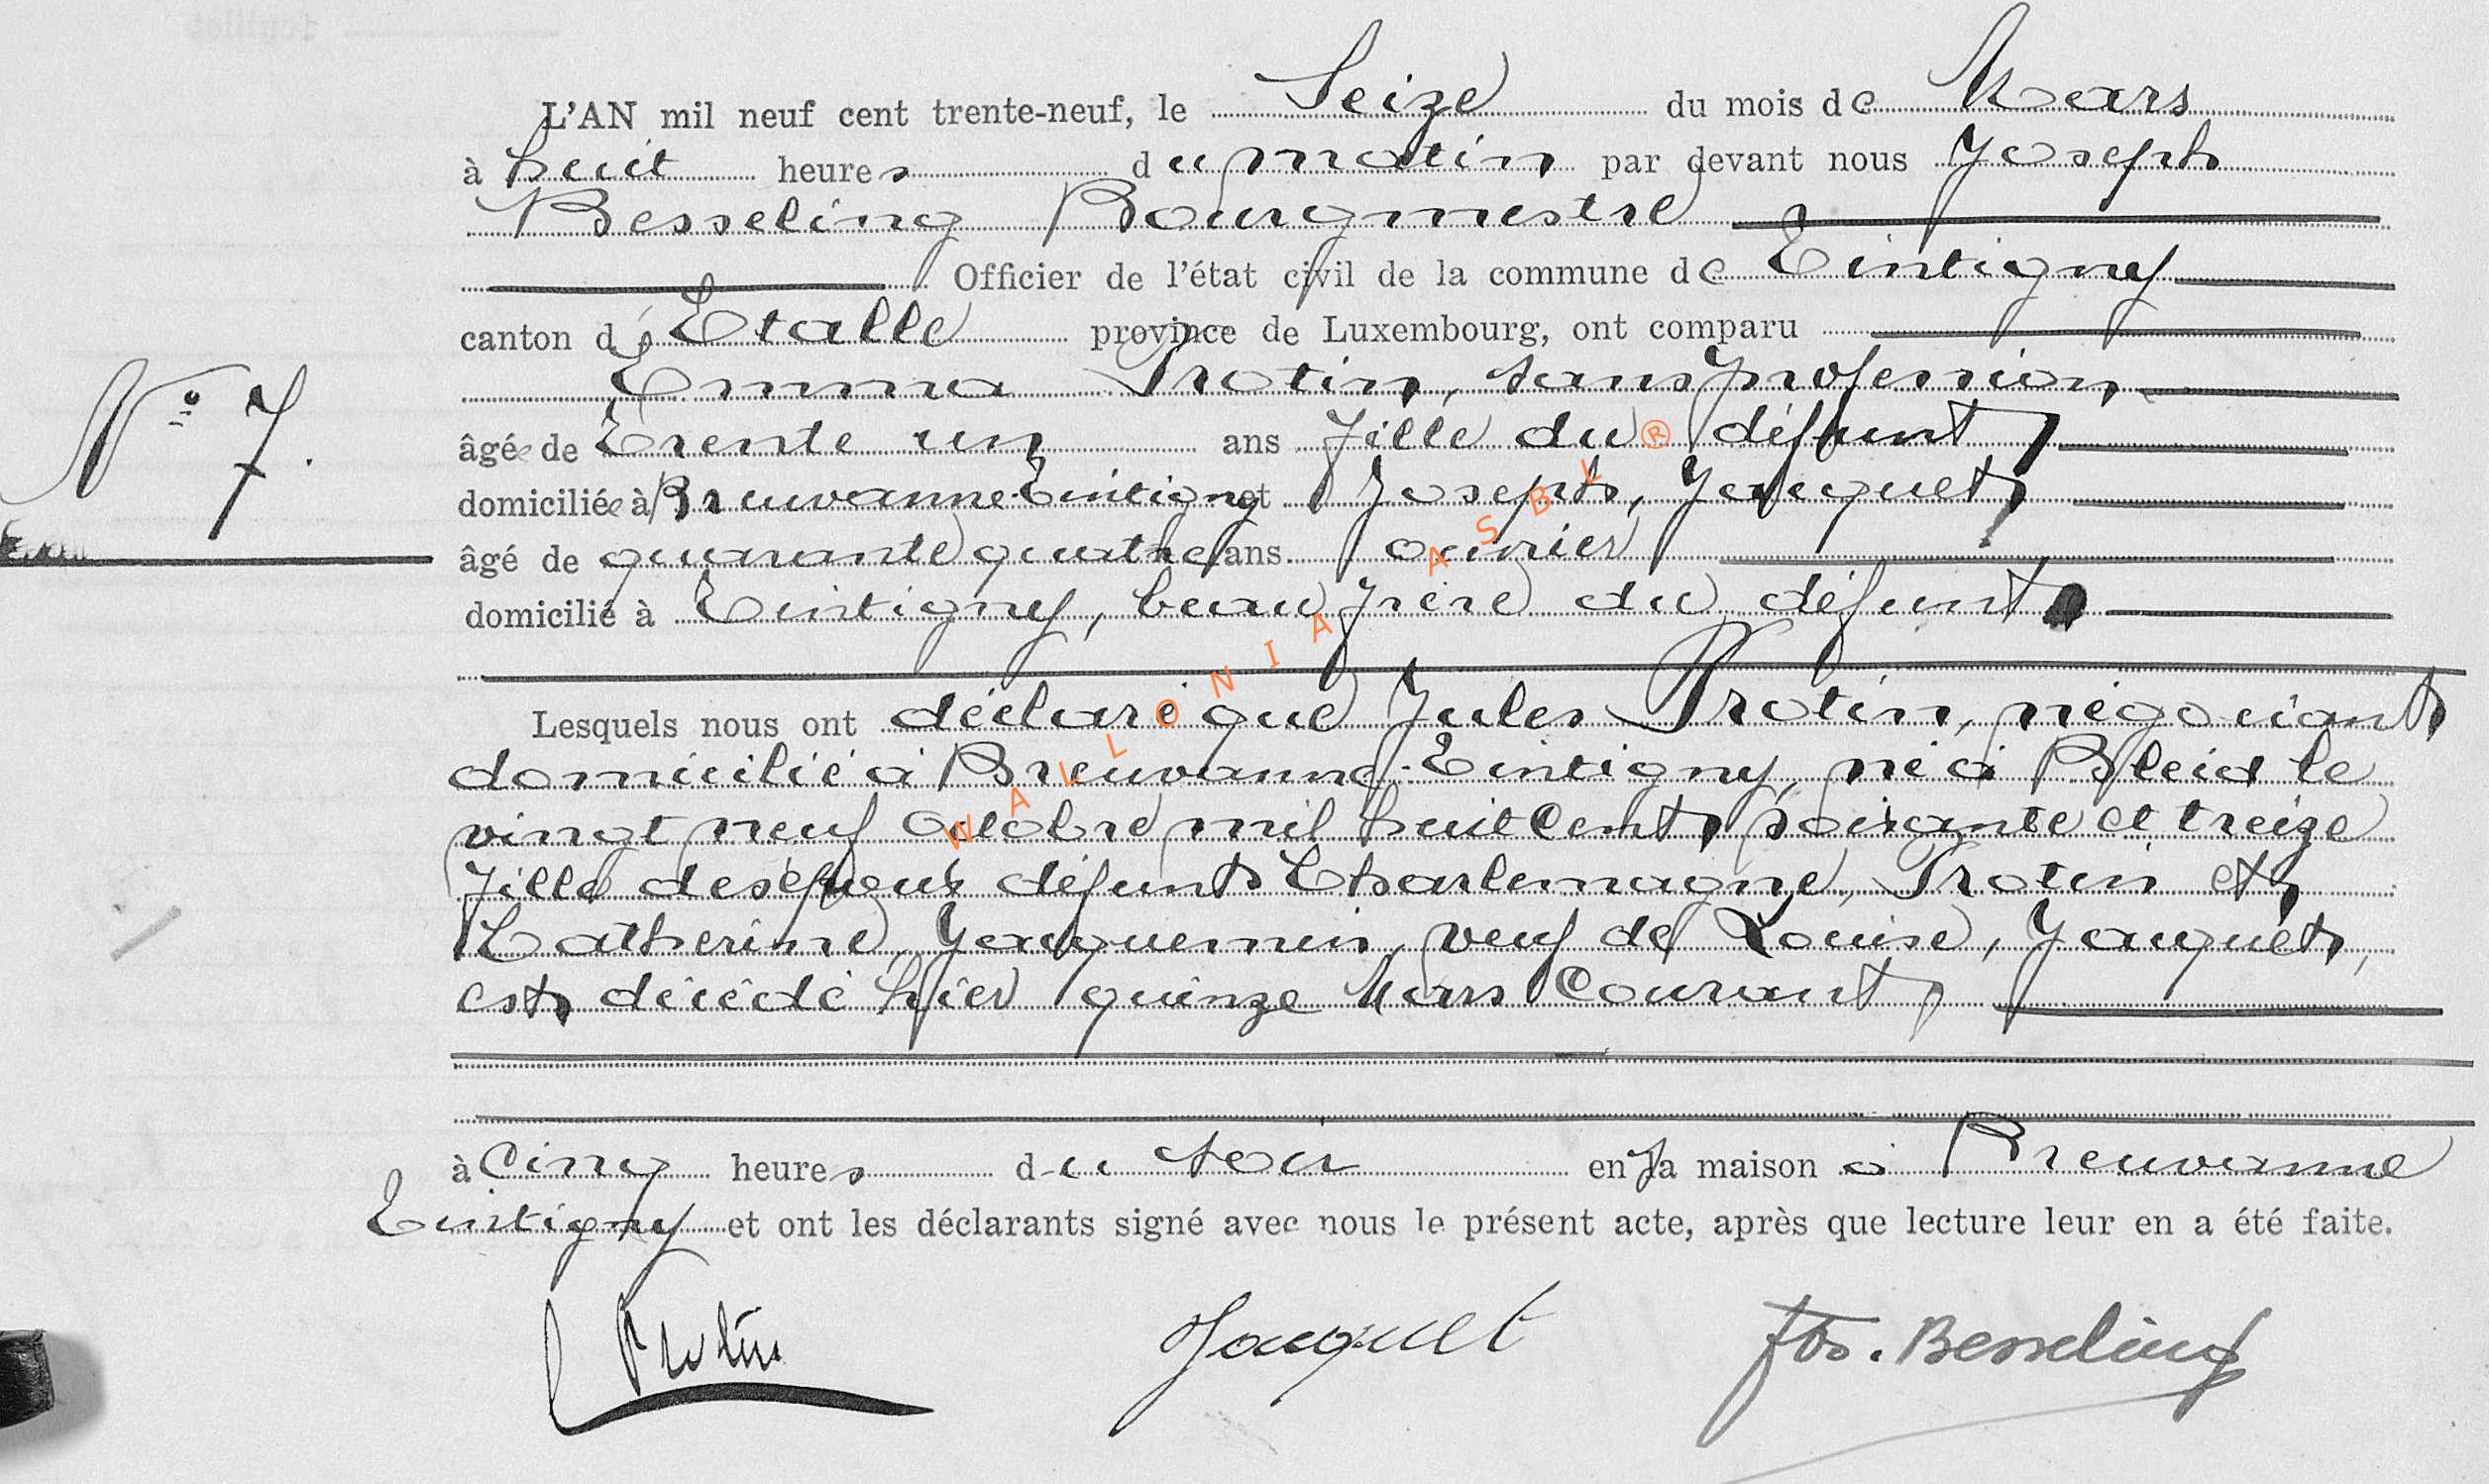 L'AN mil neuf cent trente-neuf, le Seize du mois de Mars
à huit heures du matin par devant nous Joseph
Besseling Bourgmestre
Officier de l'état civil de la commune de Tintigny
canton d'Etalle province de Luxembourg, ont comparu
Emma Protin, sans profession,
N° 7.
âgée de Trente un ans fille du défunt
domiciliée à Breuvanne-Tintigny et Joseph, Jacquet
âgé de quarante quatre ans ouvrier
domicilié à Tintigny, beau frère du défunt
Lesquels nous ont déclaré que Jules Protin, négociant
domicilié à Breuvanne-Tintigny, né à Bleid le
vingt neuf Octobre mil huit Cent soixante et treize
fille des époux défunts Charlemagne, Protin et
Catherine, Jacquemin, veuf de Louise, Jacquet,
est décédé hier quinze Mars Courant
à Cinq heures du soir en sa maison à Breuvanne
Tintigny et ont les déclarants signé avec nous le présent acte, après que lecture leur en a été faite.
Protin Jacquet Jos. Besseling
WALLONIA ASBL ®